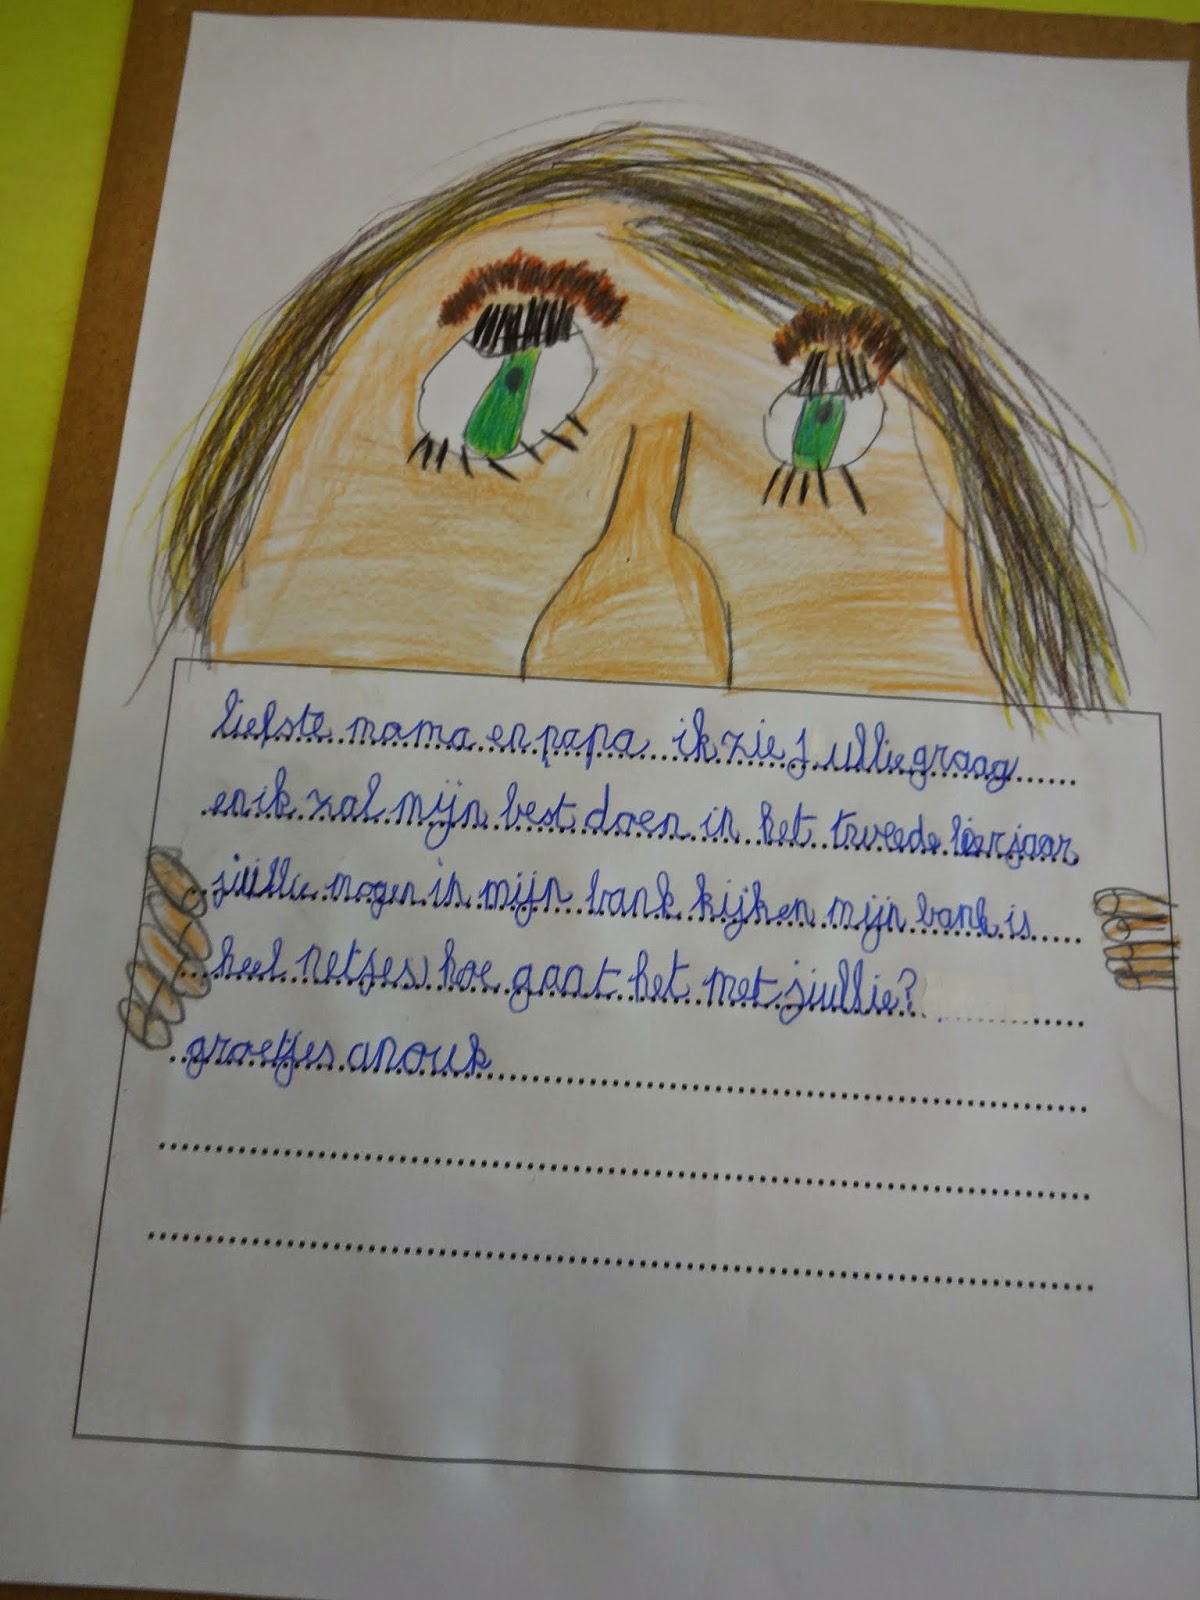 liefste mama en papa ik zie jullie graag
en ik zal mijn best doen in het tweede leerjaar
jullie mogen in mijn bank kijken mijn bank is
heel netjes hoe gaat het met jullie?
groetjes anouk